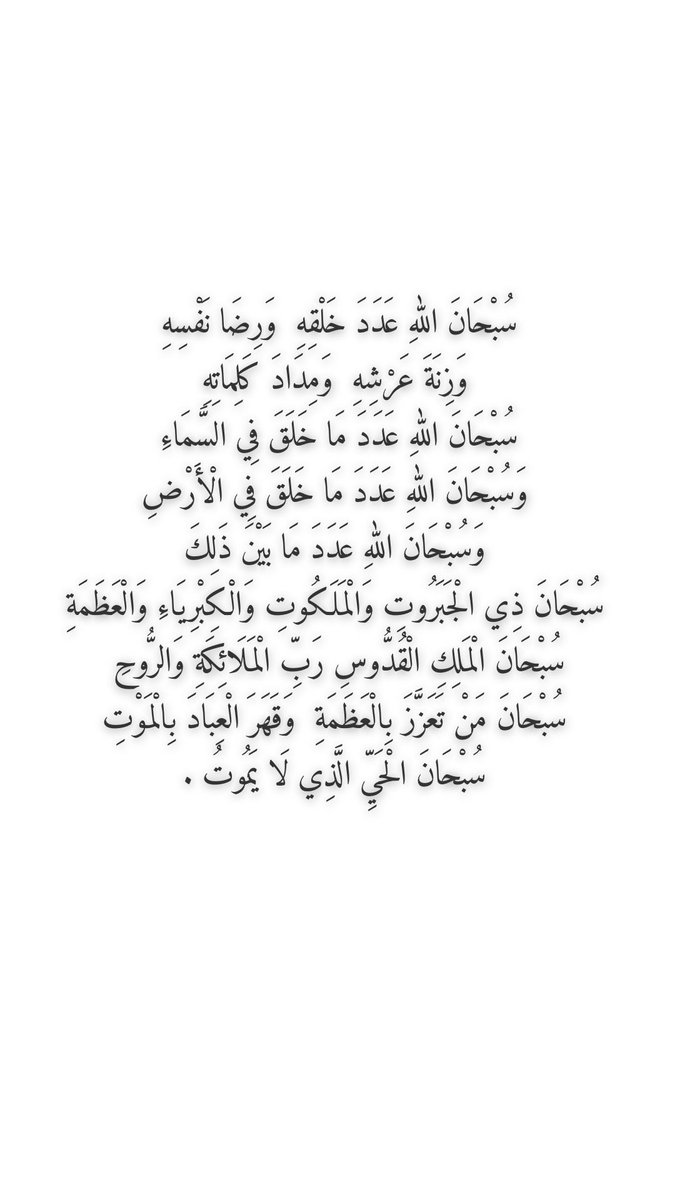 سُبْحَانَ اللهِ عَدَدَ خَلْقِهِ وَرِضَا نَفْسِهِ
وَزِنَةَ عَرْشِهِ وَمِدَادَ كَلِمَاتِهِ
سُبْحَانَ اللهِ عَدَدَ مَا خَلَقَ فِي السَّمَاءِ
وَسُبْحَانَ اللهِ عَدَدَ مَا خَلَقَ فِي الْأَرْضِ
وَسُبْحَانَ اللهِ عَدَدَ مَا بَيْنَ ذَلِكَ
سُبْحَانَ ذِي الْجَبَرُوتِ وَالْمَلَكُوتِ وَالْكِبْرِيَاءِ وَالْعَظَمَةِ
سُبْحَانَ الْمَلِكِ الْقُدُّوسِ رَبِّ الْمَلَائِكَةِ وَالرُّوحِ
سُبْحَانَ مَنْ تَعَزَّزَ بِالْعَظَمَةِ وَقَهَرَ الْعِبَادَ بِالْمَوْتِ
سُبْحَانَ الْحَيِّ الَّذِي لَا يَمُوتُ .